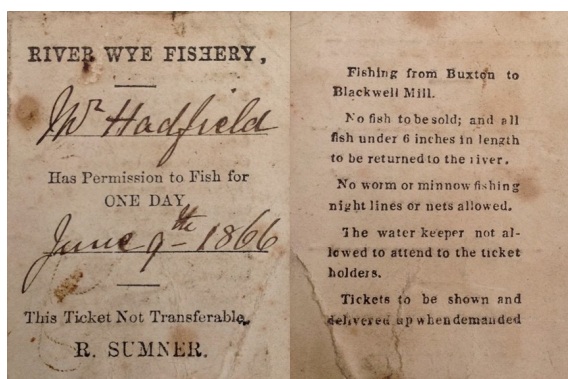 RIVER WYE FISHERY,
Mr Hadfield
Has Permission to Fish for
ONE DAY
June 9th 1866
This Ticket Not Transferable.
R. SUMNER.
Fishing from Buxton to
Blackwell Mill.
No fish to be sold; and all
fish under 6 inches in length
to be returned to the river.
No worm or minnow fishing
night lines or nets allowed.
The water keeper not al-
lowed to attend to the ticket
holders.
Tickets to be shown and
delivered up when demanded